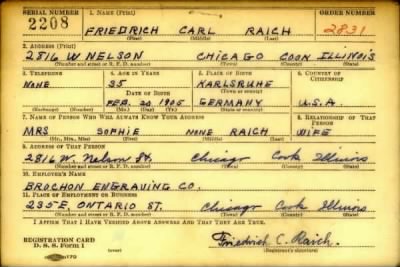 SERIAL NUMBER 1. NAME (Print) ORDER NUMBER
2208 FRIEDRICH CARL RAICH 2831
(First) (Middle) (Last)
2. ADDRESS (Print)
2816 W NELSON CHICAGO COOK ILLINOIS
(Number and street or R. F. D. number) (Town) (County) (State)
3. TELEPHONE 4. AGE IN YEARS 5. PLACE OF BIRTH 6. COUNTRY OF CITIZENSHIP
NONE 35 KARLSRUHE
DATE OF BIRTH (Town or county)
FEB. 20 1905 GERMANY U.S.A.
(Exchange) (Number) (Mo.) (Day) (Yr.) (State or country)
7. NAME OF PERSON WHO WILL ALWAYS KNOW YOUR ADDRESS 8. RELATIONSHIP OF THAT PERSON
MRS SOPHIE NONE RAICH WIFE
(Mr., Mrs., Miss) (First) (Middle) (Last)
9. ADDRESS OF THAT PERSON
2816 W. Nelson St. Chicago Cook Illinois
(Number and street or R. F. D. number) (Town) (County) (State)
10. EMPLOYER'S NAME
BROCHON ENGRAVING CO.
11. PLACE OF EMPLOYMENT OR BUSINESS
235 E. ONTARIO ST. Chicago Cook Illinois
(Number and street or R. F. D. number) (Town) (County) (State)
I AFFIRM THAT I HAVE VERIFIED ABOVE ANSWERS AND THAT THEY ARE TRUE.
REGISTRATION CARD
D. S. S. FORM 1 Friedrich C. Raich.
(Registrant's signature)